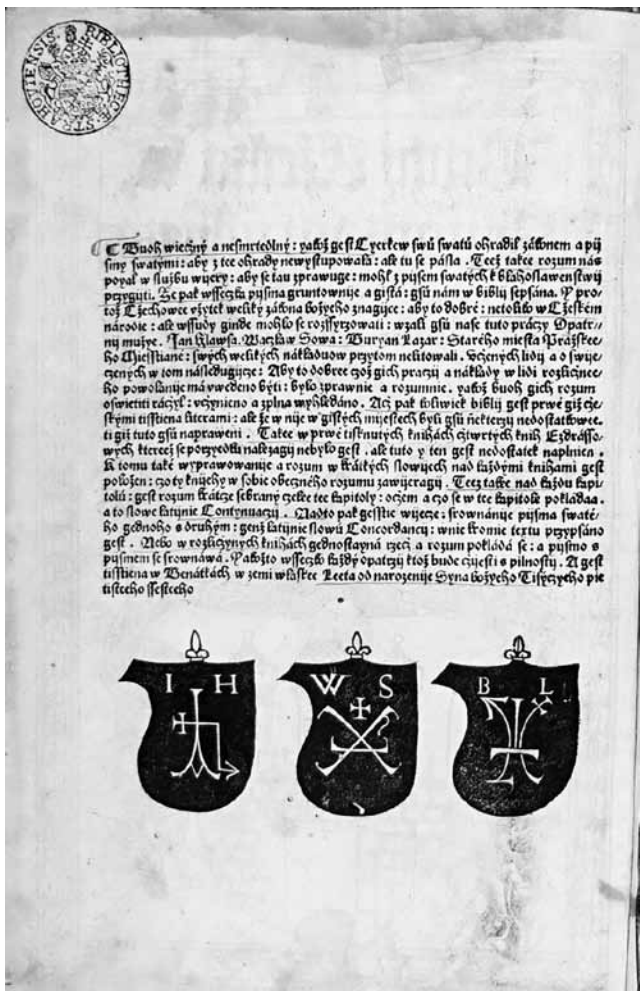 BIBLIOTHECÆ STRAHOVIENSIS
Buoh wiečzný a nesmrtedlný : yakož gest Cyerkew swú swatú ohradil zákonem a pij
smy swatými : aby z tee ohrady newystupowala : ale tu se pásla . Teež takee rozum náš
poyal w službu wijery : aby se tau zprawuge : mohl z pijsem swatých k blahoslawenstwij
przygijti . Že pak wsseczka pijsma gruntownije a gistá : gsú nám w biblij sepsána . Y pro⸗
tož Čžechowee vžytek weliký zákona božyeho znagijce : aby to dobré : netoliko w Čžeském
národie : ale wssudy ginde mohlo se rozssyrzowati : wzali gsú nase tuto práczy Opatr⸗
nij mužye . Jan Hlawsa . Waczlaw Sowa : Buryan Lazar : Starého miesta Pražskee⸗
ho Miesstiané : swých welikých nákladuow przytom nelitowali . Včzených lidij a o swije⸗
czených w tom následugijce : Aby to dobree czož gich praczij a náklady w lidi rozličznee⸗
ho powolánije má vwedeno býti : bylo zprawnie a rozumnie . yakož buoh gich rozum
oswietiti ráčzyl : včzynieno a zplna wyhledáno . Ač pak koliwiek biblij gest prwé giž čze⸗
skými tisstiena literami : ale že w nije w gistých mijestech byli gsú niekterzij nedostatkowee .
ti giž tuto gsú naprawení . Takee w prwé tisknutých knihách čztwrtých knih Ezdrásso⸗
wých ktereež se porzyedku nalezagij nebylo gest . ale tuto y ten gest nedostatek naplnien .
K tomu také wyprawowánije a rozum w krátkých slowijech nad každými knihami gest
položen : czo ty knijehy w sobie obecznéno rozumu zawijeragij . Teez takee nad každú kapi⸗
tolú : gest rozum krátcze sebraný czelee tee kapitoly : oczem a czo se w tee kapitole pokládáa .
a to slowe latijnie Contynuacij . Nadto pak gesstie wijecze : srownánije pijsma swaté⸗
ho gednoho s druhým : genž latijnie slowú Concordancij : wnie kromie textu przypsáno
gest . Nebo w rozličzných knihách gednostayná rzecz a rozum pokládá se : a pijsmo s
pijsmem se srownáwá . Yakožto wsseczko každý opatrzij ktož bude czijsti s pilnostij . A gest
tisstiena w Benátkách w zemi wlaskee Leeta od narozenije Syna božyeho Tisyczyeho pie
tisteeho ssesteeho
I H
W S
B L